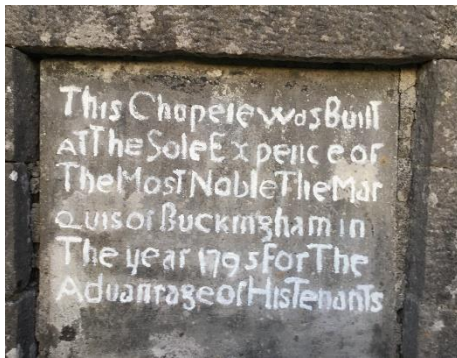 This Chapele was Built
At The Sole Expence of
The Most Noble The Mar
Quis of Buckingham in
The year 1795 For The
Aduantage of His Tenants